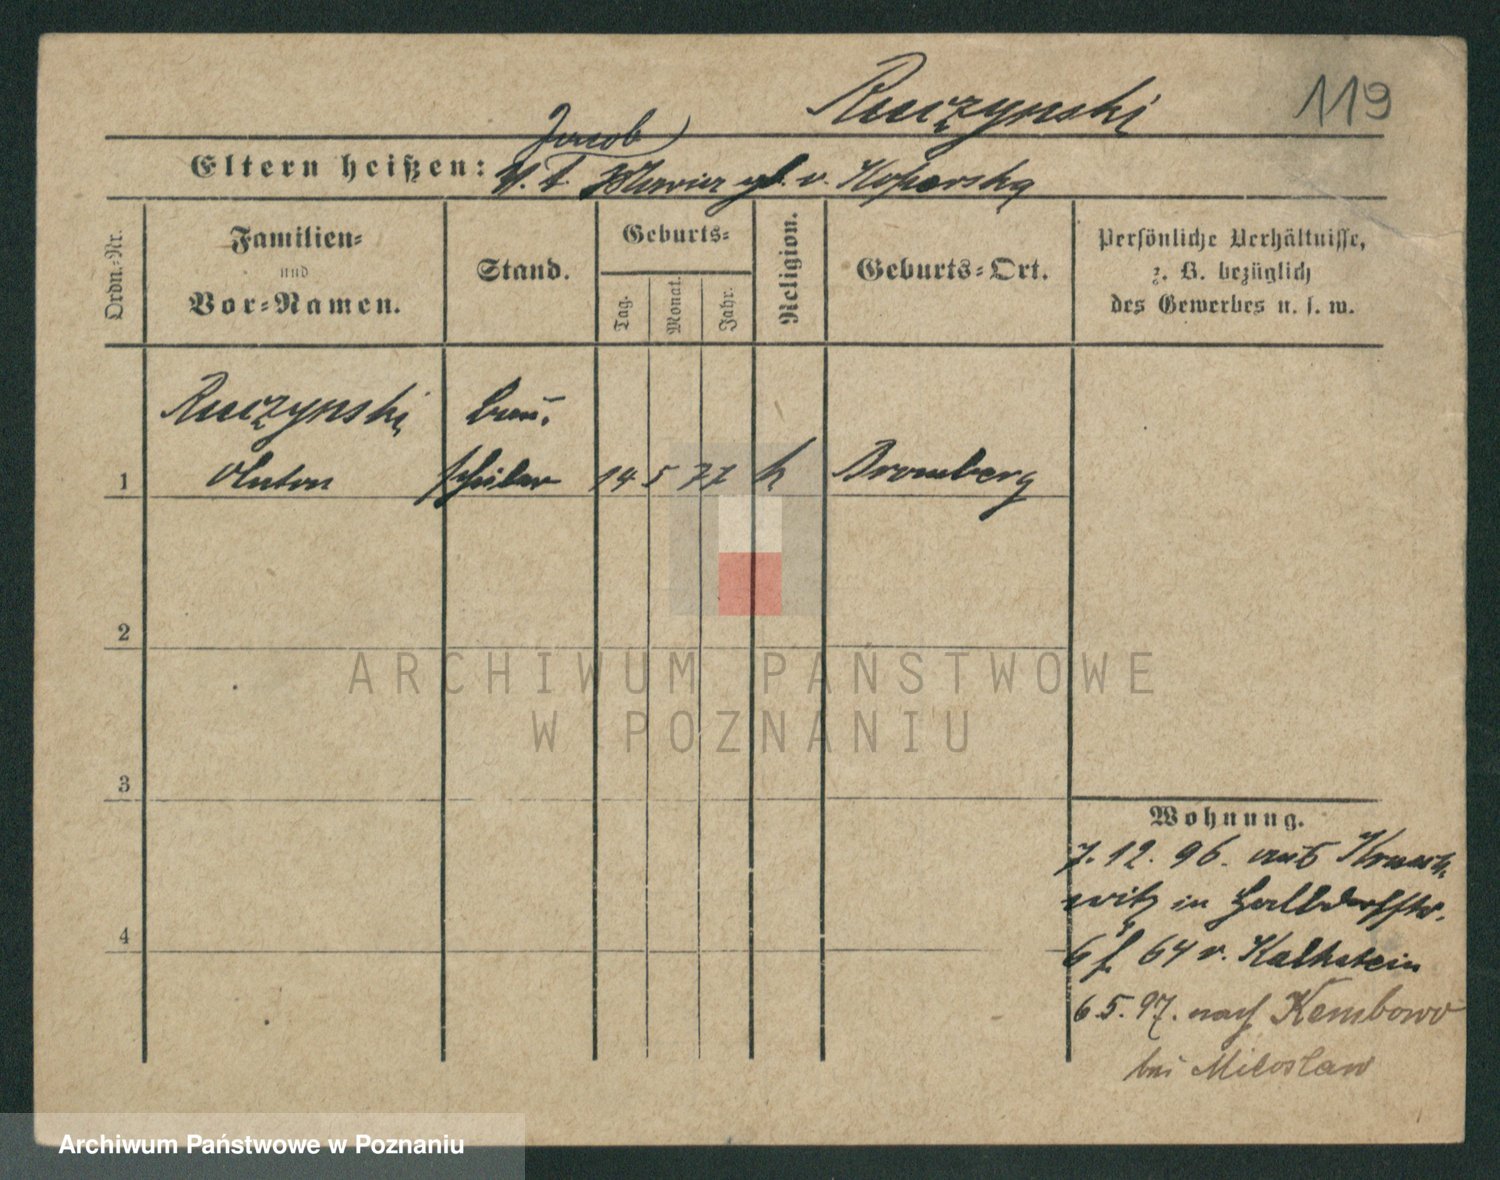 Ruczynski
119
Jacob
Eltern heißen: V. t. gb. v. Koperska
Ordn.-Nr.
Familien-
und
Vor-Namen.
Stand.
Geburts-
Tag.
Monat.
Jahr.
Religion.
Geburts-Ort.
Persönliche Verhältnisse,
z. B. bezüglich
des Gewerbes u. s. w.
Ruczynski
Bau-
1 Anton schüler 14 5 77 k Bromberg
2
ARCHIWUM PAŃSTWOWE
W POZNANIU
3
Wohnung.
7. 12. 96. aus
witz in Halbdorfstr.
4
6 64 v. Kalkstein
6.5.97. nach Kembowo
bei Miloslaw
Archiwum Państwowe w Poznaniu